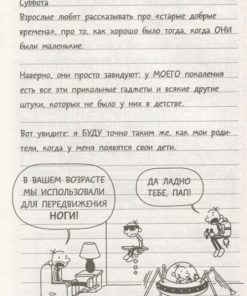 Суббота
Взрослые любят рассказывать про «старые добрые
времена», про то, как хорошо было тогда, когда ОНИ
были маленькие.
Наверно, они просто завидуют: у МОЕГО поколения
есть все эти прикольные гаджеты и всякие другие
штуки, которых не было у них в детстве.
Вот увидите: я БУДУ точно таким же, как мои роди-
тели, когда у меня появятся свои дети.
В ВАШЕМ ВОЗРАСТЕ
МЫ ИСПОЛЬЗОВАЛИ
ДЛЯ ПЕРЕДВИЖЕНИЯ
НОГИ!
ДА ЛАДНО
ТЕБЕ, ПАП!